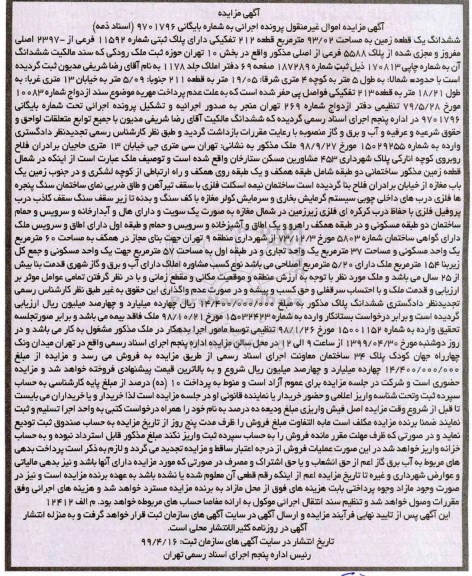 آگهی مزایده
آگهی مزایده اموال غیرمنقول پرونده اجرائی به شماره بایگانی ۹۷۰۱۷۹۶ (اسناد ذمه)
ششدانگ یک قطعه زمین به مساحت ۹۳/۰۲ مترمربع قطعه ۲۱۲ تفکیکی دارای پلاک ثبتی شماره ۱۱۵۹۲ فرعی از ۲۳۹۷- اصلی
مفروز و مجزی شده از پلاک ۵۵۸۸ فرعی از اصلی مذکور واقع در بخش ۱۰ تهران حوزه ثبت ملک رودکی که سند مالکیت ششدانگ
آن به شماره چاپی ۱۷۰۸۱۳ ذیل ثبت شماره ۱۸۷۲۸۹ صفحه ۶۹ دفتر املاک جلد ۱۱۷۸ به نام آقای رضا شریفی مدیون ثبت گردیده
است با حدود: شمالا: به طول ۵ متر به کوچه ۴ متری شرقا: ۱۹/۰۵ متر به قطعه ۲۱۱ جنوبا: ۵/۰۹ متر به خیابان ۱۳ متری غربا: به
طول ۱۸/۲۱ متر به قطعه ۲۱۳ تفکیکی فواصل پی حفر شده است که به علت عدم پرداخت مهریه موضوع سند ازدواج شماره ۱۰۰۸۳
۷۹/۵/۲۸ تنظیمی دفتر ازدواج شماره ۲۶۹ تهران منجر به صدور اجرائیه و تشکیل پرونده اجرائی تحت شماره بایگانی
۹۷۰۱۷۹۶ در اداره پنجم اجرای اسناد رسمی گردیده که ششدانگ مالکیت آقای رضا شریفی مدیون با جمیع توابع متعلقات لواحق و
حقوق شرعیه و عرفیه و آب و برق و گاز منصوبه با رعایت مقررات بازداشت گردید و طبق نظر کارشناس رسمی تجدیدنظر دادگستری
وارده به شماره ۱۵۰۲۹۲۵۵ مورخ ۹۸/۹/۲۷ ملک مذکور به نشانی: تهران سی متری جی خیابان ۱۳ متری حاجیان برادران فلاح
روبروی کوچه انارکی پلاک شهرداری ۴۵۳ مشاورین مسکن ستارخان واقع شده است و توصیف ملک عبارت است از اینکه در شمال
قطعه زمین مذکور ساختمانی دو طبقه شامل طبقه همکف و یک طبقه روی همکف و راه ارتباطی از کوچه لشکری و در جنوب زمین یک
باب مغازه از خیابان برادران فلاح بنا گردیده است ساختمان نیمه اسکلت فلزی با سقف تیرآهن و طاق ضربی نمای ساختمان سنگ پنجره
ها فلزی درب های داخلی چوبی سیستم گرمایش بخاری و سرمایش کولر مغازه با کف سنگ و بدنه تا زیر سقف سنگ سقف کاذب درب
پروفیل فلزی با حفاظ درب کرکره ای فلزی زیرزمین در شمال مغازه به صورت یک سویت و دارای هال و آبدارخانه و سرویس و حمام
ساختمان دو طبقه مسکونی و در طبقه همکف دارای هال یک اطاق و آشپزخانه و سرویس و حمام و طبقه اول دارای اطاق و سرویس ملک
دارای گواهی ساختمان شماره ۵۸۰۳ مورخ ۷۳/۱۲/۳ شهرداری منطقه ۹ تهران جهت بنای مجاز در همکف به مساحت ۶۰ مترمربع
یک واحد مسکونی و مساحت ۳۷ مترمربع یک واحد تجاری و در طبقه اول به مساحت ۵۷ مترمربع جهت یک واحد مسکونی و جمع کل
زیربنا ۱۵۴ مترمربع ملک دارای ۵/۲۰ مترمربع اصلاحی می باشد نوع کسب مشاوره املاک دارای آب و برق و گاز شهری قدمت بنا بیش
از ۲۵ سال می باشد و ملک مورد نظر با توجه به ارزش منطقه و موقعیت مکانی و مقطع زمانی و با در نظر گرفتن تمامی عوامل موثر بر
ارزیابی و قدمت ملک و با احتساب سرقفلی و حق کسب و پیشه و در صورت عدم واگذاری این حقوق به غیر طبق نظر کارشناس رسمی
تجدیدنظر دادگستری ششدانگ پلاک مذکور به مبلغ ۱۴/۴۰۰/۰۰۰/۰۰۰ ریال چهارده میلیارد و چهارصد میلیون ریال ارزیابی
گردیده است و برابر درخواست بستانکار وارده به شماره ۱۵۰۳۲۴۲۳ مورخ ۹۸/۱۰/۲۱ ملک فاقد بیمه می باشد و برابر صورتجلسه
تحقیق وارده به شماره ۱۵۰۰۱۱۵۲ مورخ ۹۸/۱/۲۶ تنظیمی توسط مامور اجرا بدهکار در ملک مذکور مشغول به کار می باشد و در
روز دوشنبه مورخ ۱۳۹۹/۰۴/۳۰ از ساعت ۹ الی ۱۲ در محل سالن مزایده اداره پنجم اجرای اسناد رسمی واقع در تهران میدان ونک
چهارراه جهان کودک پلاک ۳۴ ساختمان معاونت اجرای اسناد رسمی از طریق مزایده به فروش می رسد و مزایده از مبلغ
۱۴/۴۰۰/۰۰۰/۰۰۰ چهارده میلیارد و چهارصد میلیون ریال شروع و به بالاترین قیمت پیشنهادی فروخته خواهد شد و مزایده
حضوری است و شرکت در جلسه مزایده برای عموم آزاد است و منوط به پرداخت ۱۰ (ده) درصد از مبلغ پایه کارشناسی به حساب
سپرده ثبت وتحت شناسه واریز اعلامی و حضور خریدار یا نماینده قانونی او در جلسه مزایده است لذا خریدار و یا خریداران می بایست
تا قبل از شروع وقت مزایده اصل فیش واریزی مبلغ ودیعه ده درصد به نام خود را همراه درخواست کتبی به واحد اجرا تسلیم و ثبت
نمایند ضمنا برنده مزایده مکلف است مابه التفاوت مبلغ فروش را ظرف مدت پنج روز از تاریخ مزایده به حساب صندوق ثبت تودیع
نماید و در صورتی که ظرف مهلت مقرر مانده فروش را به حساب سپرده ثبت واریز نکند مبلغ مذکور قابل استرداد نبوده و به حساب
خزانه واریز خواهد شد در این صورت عملیات فروش از درجه اعتبار ساقط و مزایده تجدید می گردد و لازم به ذکر است پرداخت بدهی
های مربوط به آب برق گاز اعم از حق انشعاب و یا حق اشتراک و مصرف در صورتی که مورد مزایده دارای آنها باشد و نیز بدهی مالیاتی
و عوارض شهرداری و غیره تا تاریخ مزایده اعم از اینکه رقم قطعی آن معلوم شده یا نشده باشد به عهده برنده مزایده است و نیز در
صورت وجود مازاد وجوه پرداختی بابت هزینه های فوق از محل مازاد به برنده مزایده مسترد خواهد شد و هزینه های اجرایی وفق
مقررات وصول خواهد شد و تنظیم سند انتقال اجرائی موکول به ارائه مفاصا حساب های مربوطه خواهد بود. م الف ۱۲۴۱۲
این آگهی پس از تایید نهایی فرآیند مزایده و ارسال آگهی در سایت آگهی های سازمان ثبت قرار خواهد گرفت و به منزله انتشار
آگهی در روزنامه کثیرالانتشار محلی است.
تاریخ انتشار در سایت آگهی های سازمان ثبت: ۹۹/۴/۱۶
رئیس اداره پنجم اجرای اسناد رسمی تهران